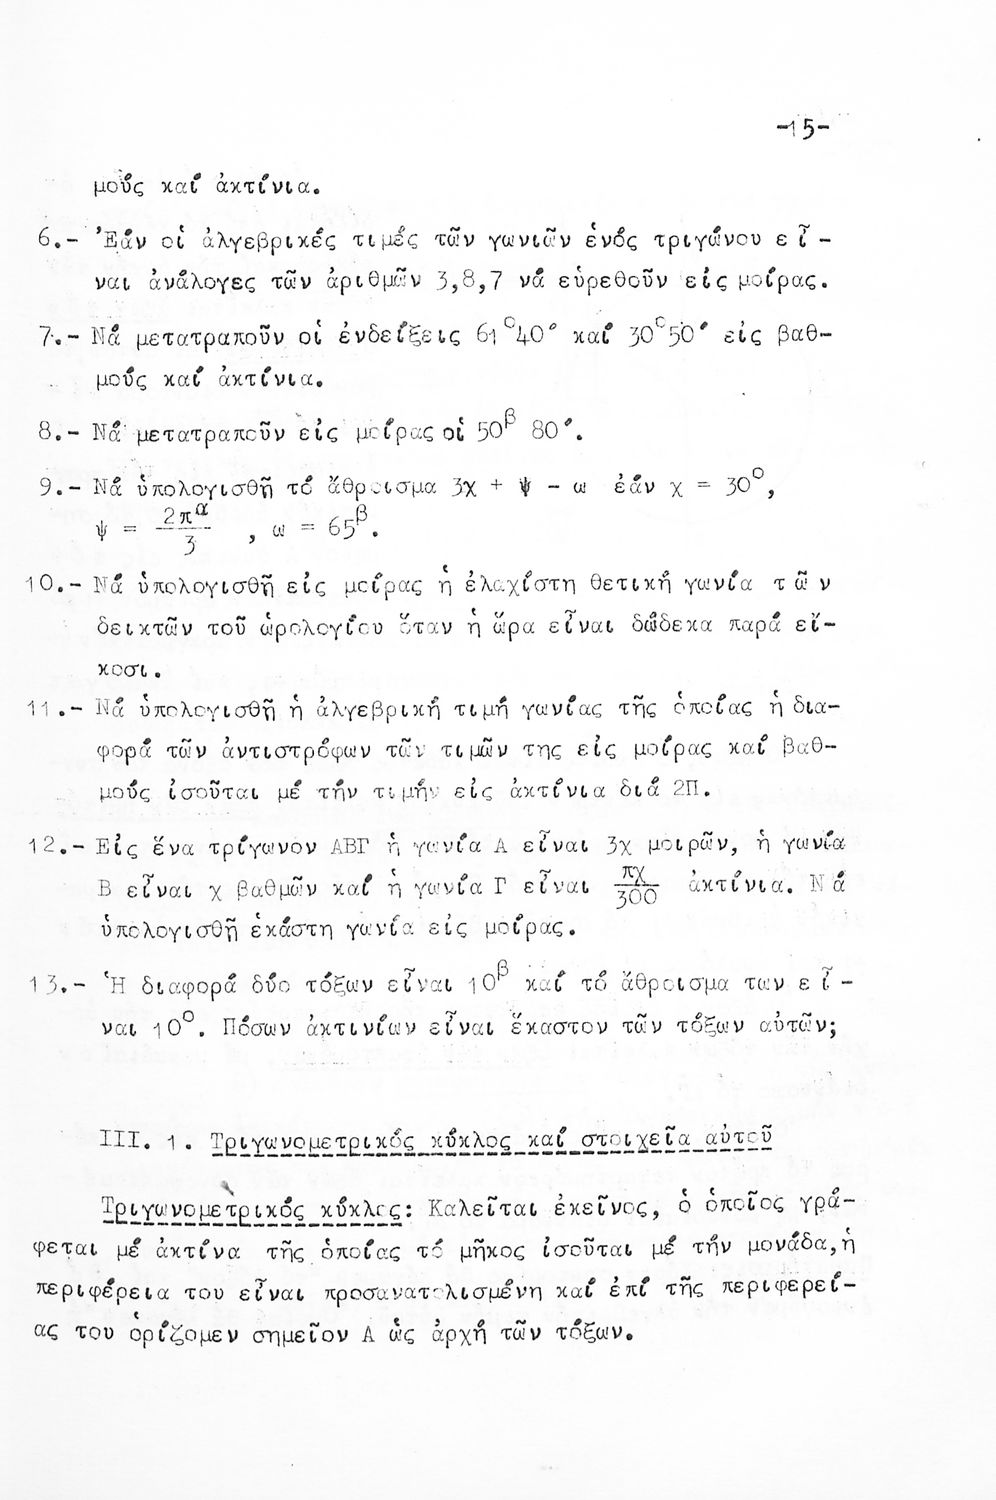 -15-
μούς καί ἀκτίνια.
6.- Ἐάν οἱ ἀλγεβρικές τιμές τῶν γωνιῶν ἑνός τριγώνου εἶ-
ναι ἀνάλογες τῶν ἀριθμῶν 3,8,7 νά εὑρεθοῦν εἰς μοίρας.
7.- Νά μετατραποῦν οἱ ἐνδείξεις 61°40´ καί 30°50´ εἰς βαθ-
μούς καί ἀκτίνια.
8.- Νά μετατραποῦν εἰς μοίρας οἱ 50^β 80´.
9.- Νά ὑπολογισθῇ τό ἄθροισμα 3χ + ψ - ω ἐάν χ = 30°,
ψ = 2π^α/3 , ω = 65^β.
10.- Νά ὑπολογισθῇ εἰς μοίρας ἡ ἐλαχίστη θετική γωνία τῶν
δεικτῶν τοῦ ὡρολογίου ὅταν ἡ ὥρα εἶναι δώδεκα παρά εἴ-
κοσι.
11.- Νά ὑπολογισθῇ ἡ ἀλγεβρική τιμή γωνίας τῆς ὁποίας ἡ δια-
φορά τῶν ἀντιστρόφων τῶν τιμῶν της εἰς μοίρας καί βαθ-
μούς ἰσοῦται μέ τήν τιμήν εἰς ἀκτίνια διά 2Π.
12.- Εἰς ἕνα τρίγωνον ΑΒΓ ἡ γωνία Α εἶναι 3χ μοιρῶν, ἡ γωνία
Β εἶναι χ βαθμῶν καί ἡ γωνία Γ εἶναι πχ/300 ἀκτίνια. Νά
ὑπολογισθῇ ἑκάστη γωνία εἰς μοίρας.
13.- Ἡ διαφορά δύο τόξων εἶναι 10^β καί τό ἄθροισμα των εἶ-
ναι 10°. Πόσων ἀκτινίων εἶναι ἕκαστον τῶν τόξων αὐτῶν;
III. 1. Τριγωνομετρικός κύκλος καί στοιχεῖα αὐτοῦ
Τριγωνομετρικός κύκλος: Καλεῖται ἐκεῖνος, ὁ ὁποῖος γρά-
φεται μέ ἀκτίνα τῆς ὁποίας τό μῆκος ἰσοῦται μέ τήν μονάδα,ἡ
περιφέρεια του εἶναι προσανατολισμένη καί ἐπί τῆς περιφερεί-
ας του ὁρίζομεν σημεῖον Α ὡς ἀρχή τῶν τόξων.